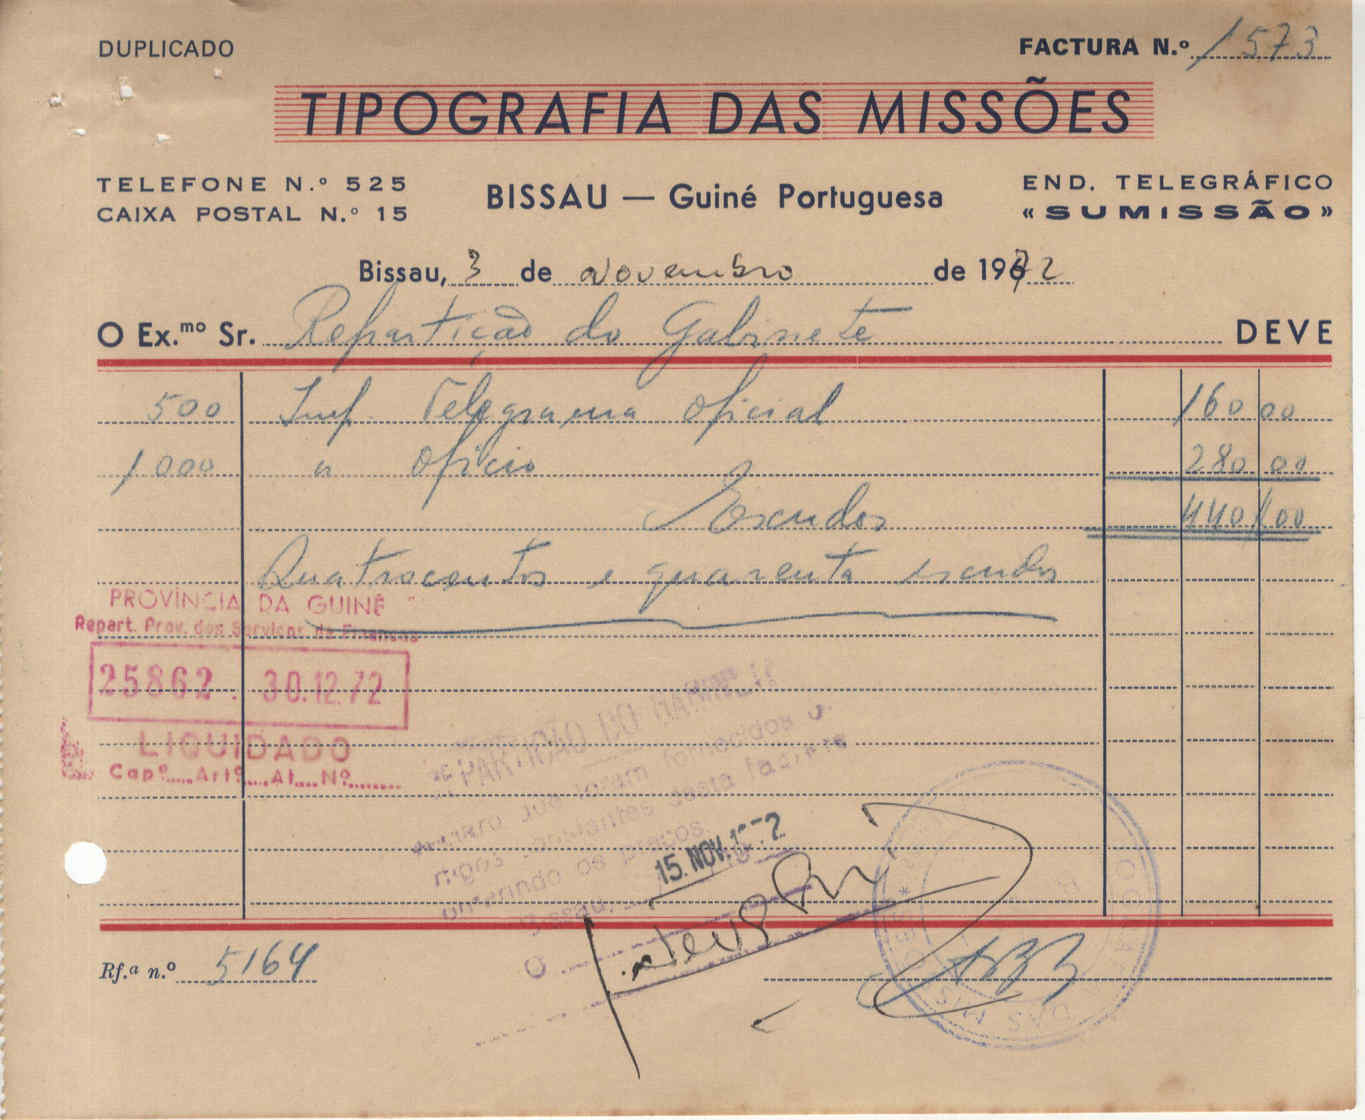 DUPLICADO
FACTURA N.º 1573
TIPOGRAFIA DAS MISSÕES
TELEFONE N.º 525
CAIXA POSTAL N.º 15
BISSAU — Guiné Portuguesa
END. TELEGRÁFICO
«SUMISSÃO»
Bissau, 3 de Novembro de 1972
O Ex.mo Sr. Repartição do Gabinete DEVE
500 Imp. Telegrama oficial 160 00
1000 " ofício 280 00
Escudos 440 00
Quatrocentos e quarenta escudos
PROVÍNCIA DA GUINÉ
Repart. Prov. dos Serviços de Finanças
25862 . 30.12.72
LIQUIDADO
Cap.º Art.º Al. N.º
REPARTIÇÃO DO GABINETE
que foram fornecidos
artigos constantes desta factura
conferindo os preços.
Bissau, 15. NOV. 1972
O
Rf.ª n.º 5164
DAS MIS